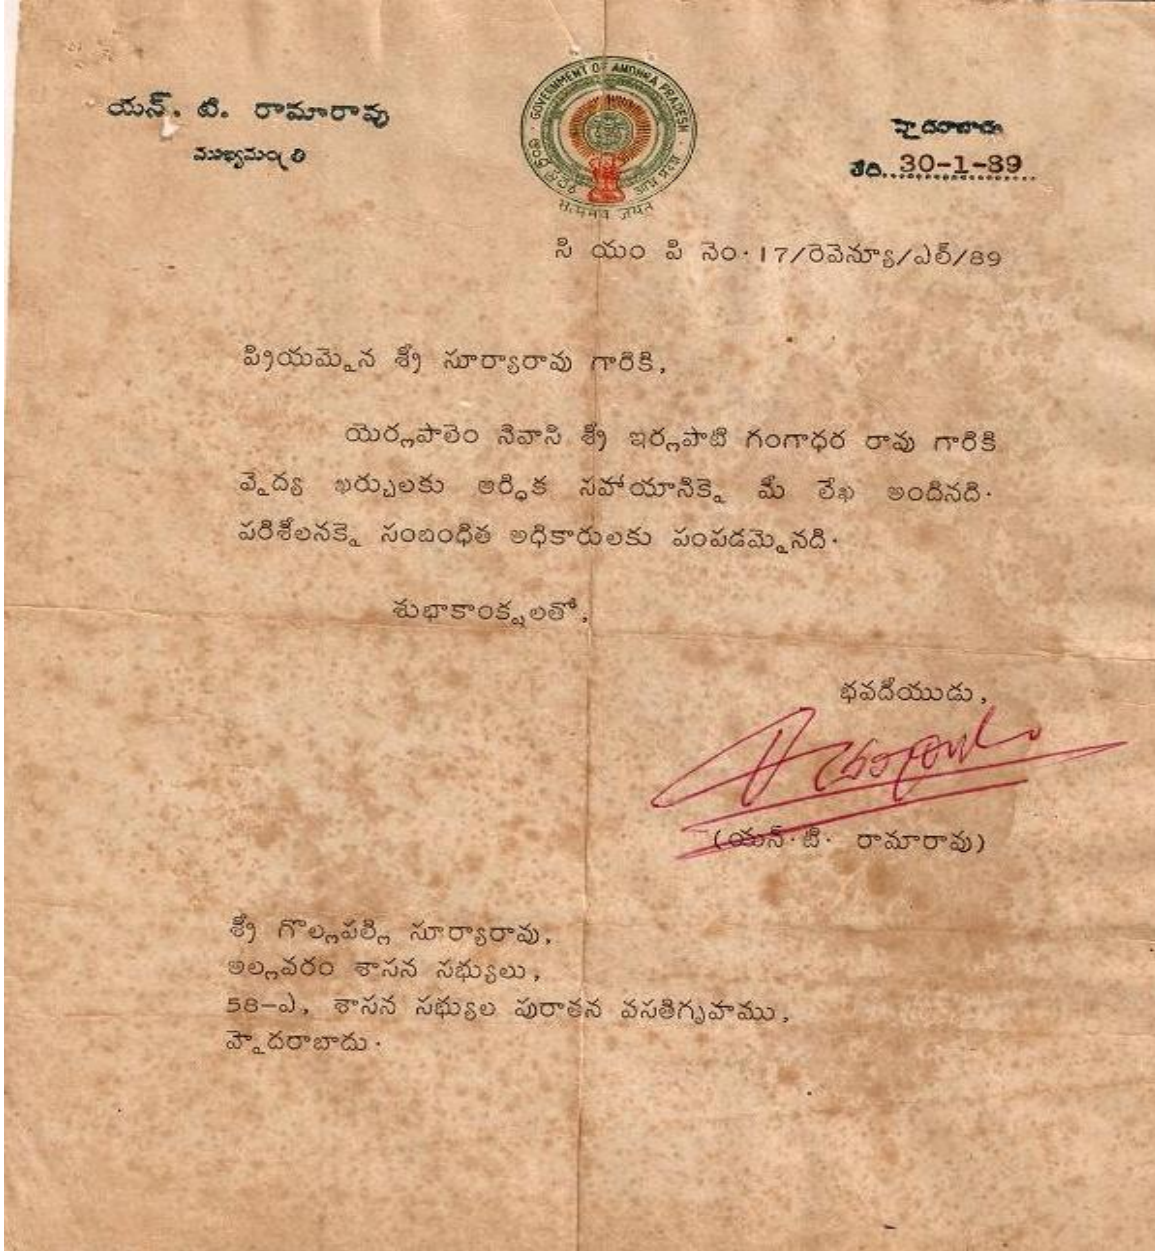 యన్. టి. రామారావు
ముఖ్యమంత్రి
GOVERNMENT OF ANDHRA PRADESH
सत्यमेव जयते
హైదరాబాదు
తేది. 30-1-89
సి యం పి నెం. 17/రెవెన్యూ/ఎల్/89
ప్రియమైన శ్రీ సూర్యారావు గారికి,
యెర్లపాలెం నివాసి శ్రీ ఇర్లపాటి గంగాధర రావు గారికి
వైద్య ఖర్చులకు ఆర్థిక సహాయానికై మీ లేఖ అందినది.
పరిశీలనకై సంబంధిత అధికారులకు పంపడమైనది.
శుభాకాంక్షలతో,
భవదీయుడు,
(యన్.టి. రామారావు)
శ్రీ గొల్లపల్లి సూర్యారావు,
అల్లవరం శాసన సభ్యులు,
58-ఎ, శాసన సభ్యుల పురాతన వసతిగృహము,
హైదరాబాదు.